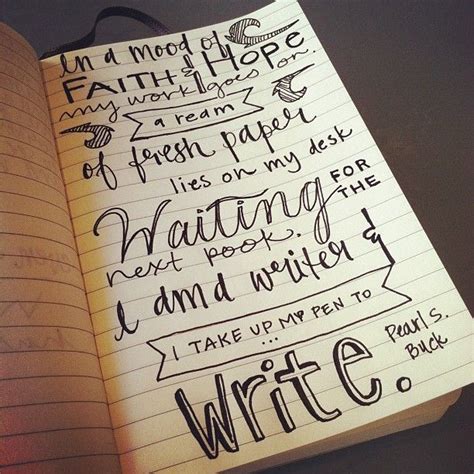 in a mood of
FAITH & Hope
my work goes on.
a ream
of fresh paper
lies on my desk
Waiting FOR THE
next book.
I am a writer &
I TAKE UP MY PEN TO
...
Write.
Pearl S.
Buck